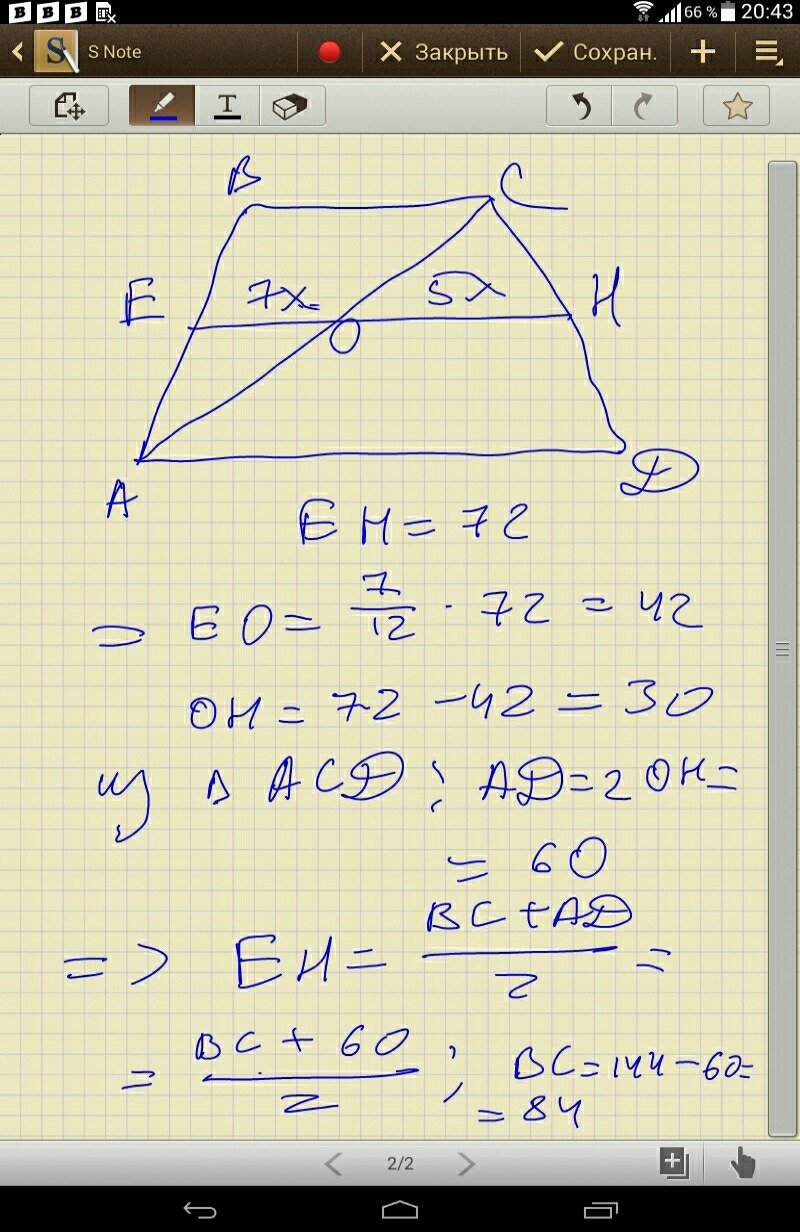 66 % 20:43
S Note Закрыть Сохран.
T
B C
E 7x 5x H
O
A D
EH = 72
⇒ EO = 7/12 · 72 = 42
OH = 72 - 42 = 30
из Δ ACD : AD = 2 OH =
= 60
=> EH = BC + AD / 2 =
= BC + 60 / 2 ; BC = 144 - 60 =
= 84
2/2